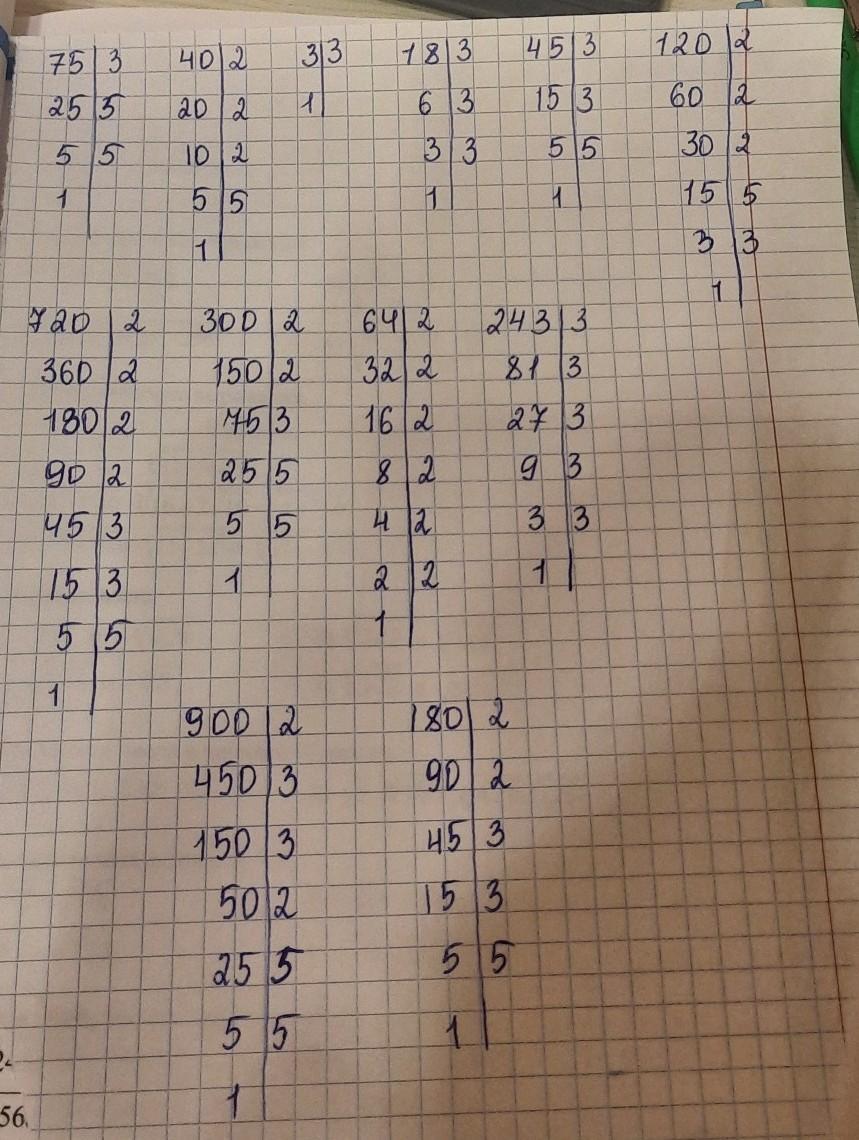 75|3 40|2 3|3 18|3 45|3 120|2
25|5 20|2 1| 6|3 15|3 60|2
5|5 10|2 3|3 5|5 30|2
1| 5|5 1| 1| 15|5
1| 3|3
1|
720|2 300|2 64|2 243|3
360|2 150|2 32|2 81|3
180|2 75|3 16|2 27|3
90|2 25|5 8|2 9|3
45|3 5|5 4|2 3|3
15|3 1| 2|2 1|
5|5 1|
1|
900|2 180|2
450|3 90|2
150|3 45|3
50|2 15|3
25|5 5|5
5|5 1|
1|
56.